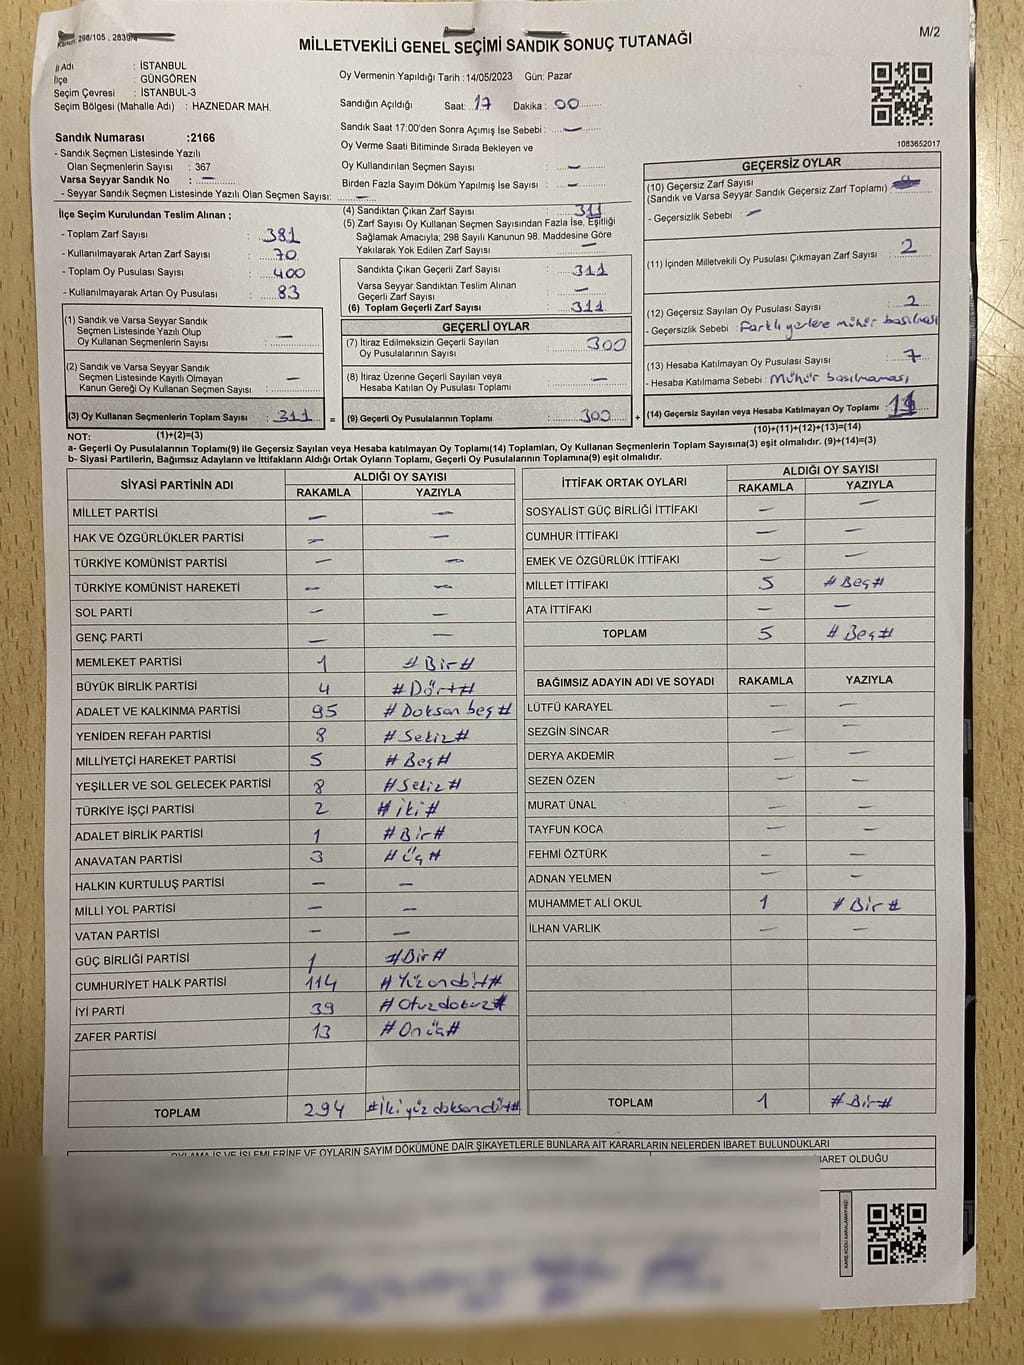 Kanun: 298/105, 2839/
MİLLETVEKİLİ GENEL SEÇİMİ SANDIK SONUÇ TUTANAĞI
M/2
İl Adı : İSTANBUL
İlçe : GÜNGÖREN
Seçim Çevresi : İSTANBUL-3
Seçim Bölgesi (Mahalle Adı) : HAZNEDAR MAH.
Oy Vermenin Yapıldığı Tarih : 14/05/2023 Gün: Pazar
Sandığın Açıldığı Saat: 17 Dakika : 00
Sandık Saat 17:00'den Sonra Açımış İse Sebebi : —
Oy Verme Saati Bitiminde Sırada Bekleyen ve
Oy Kullandırılan Seçmen Sayısı : —
Birden Fazla Sayım Döküm Yapılmış İse Sayısı : —
1083652017
Sandık Numarası :2166
- Sandık Seçmen Listesinde Yazılı
Olan Seçmenlerin Sayısı : 367
Varsa Seyyar Sandık No : —
- Seyyar Sandık Seçmen Listesinde Yazılı Olan Seçmen Sayısı: —
İlçe Seçim Kurulundan Teslim Alınan ;
- Toplam Zarf Sayısı : 381
- Kullanılmayarak Artan Zarf Sayısı : 70
- Toplam Oy Pusulası Sayısı : 400
- Kullanılmayarak Artan Oy Pusulası : 83
(1) Sandık ve Varsa Seyyar Sandık
Seçmen Listesinde Yazılı Olup
Oy Kullanan Seçmenlerin Sayısı : —
(2) Sandık ve Varsa Seyyar Sandık
Seçmen Listesinde Kayıtlı Olmayan
Kanun Gereği Oy Kullanan Seçmen Sayısı : —
(3) Oy Kullanan Seçmenlerin Toplam Sayısı : 311
(1)+(2)=(3)
(4) Sandıktan Çıkan Zarf Sayısı : 311
(5) Zarf Sayısı Oy Kullanan Seçmen Sayısından Fazla İse, Eşitliği
Sağlamak Amacıyla; 298 Sayılı Kanunun 98. Maddesine Göre
Yakılarak Yok Edilen Zarf Sayısı : —
Sandıkta Çıkan Geçerli Zarf Sayısı : 311
Varsa Seyyar Sandıktan Teslim Alınan
Geçerli Zarf Sayısı : —
(6) Toplam Geçerli Zarf Sayısı : 311
GEÇERLİ OYLAR
(7) İtiraz Edilmeksizin Geçerli Sayılan
Oy Pusulalarının Sayısı : 300
(8) İtiraz Üzerine Geçerli Sayılan veya
Hesaba Katılan Oy Pusulası Toplamı : —
= (9) Geçerli Oy Pusulalarının Toplamı : 300 +
GEÇERSİZ OYLAR
(10) Geçersiz Zarf Sayısı
(Sandık ve Varsa Seyyar Sandık Geçersiz Zarf Toplamı) :
- Geçersizlik Sebebi : —
(11) İçinden Milletvekili Oy Pusulası Çıkmayan Zarf Sayısı : 2
(12) Geçersiz Sayılan Oy Pusulası Sayısı : 2
- Geçersizlik Sebebi : Farklı yerlere mühür basılması
(13) Hesaba Katılmayan Oy Pusulası Sayısı : 7
- Hesaba Katılmama Sebebi : Mühür basılmaması
(14) Geçersiz Sayılan veya Hesaba Katılmayan Oy Toplamı : 11
(10)+(11)+(12)+(13)=(14)
NOT:
a- Geçerli Oy Pusulalarının Toplamı(9) ile Geçersiz Sayılan veya Hesaba katılmayan Oy Toplamı(14) Toplamları, Oy Kullanan Seçmenlerin Toplam Sayısına(3) eşit olmalıdır. (9)+(14)=(3)
b- Siyasi Partilerin, Bağımsız Adayların ve İttifakların Aldığı Ortak Oyların Toplamı, Geçerli Oy Pusulalarının Toplamına(9) eşit olmalıdır.
SİYASİ PARTİNİN ADI ALDIĞI OY SAYISI
RAKAMLA YAZIYLA
MİLLET PARTİSİ — —
HAK VE ÖZGÜRLÜKLER PARTİSİ — —
TÜRKİYE KOMÜNİST PARTİSİ — —
TÜRKİYE KOMÜNİST HAREKETİ — —
SOL PARTİ — —
GENÇ PARTİ — —
MEMLEKET PARTİSİ 1 #Bir#
BÜYÜK BİRLİK PARTİSİ 4 #Dört#
ADALET VE KALKINMA PARTİSİ 95 #Doksan beş#
YENİDEN REFAH PARTİSİ 8 #Sekiz#
MİLLİYETÇİ HAREKET PARTİSİ 5 #Beş#
YEŞİLLER VE SOL GELECEK PARTİSİ 8 #Sekiz#
TÜRKİYE İŞÇİ PARTİSİ 2 #iki#
ADALET BİRLİK PARTİSİ 1 #Bir#
ANAVATAN PARTİSİ 3 #üç#
HALKIN KURTULUŞ PARTİSİ — —
MİLLİ YOL PARTİSİ — —
VATAN PARTİSİ — —
GÜÇ BİRLİĞİ PARTİSİ 1 #Bir#
CUMHURİYET HALK PARTİSİ 114 #Yüzondört#
İYİ PARTİ 39 #Otuzdokuz#
ZAFER PARTİSİ 13 #Onüç#
TOPLAM 294 #İkiyüz doksandört#
İTTİFAK ORTAK OYLARI ALDIĞI OY SAYISI
RAKAMLA YAZIYLA
SOSYALİST GÜÇ BİRLİĞİ İTTİFAKI — —
CUMHUR İTTİFAKI — —
EMEK VE ÖZGÜRLÜK İTTİFAKI — —
MİLLET İTTİFAKI 5 #Beş#
ATA İTTİFAKI — —
TOPLAM 5 #Beş#
BAĞIMSIZ ADAYIN ADI VE SOYADI RAKAMLA YAZIYLA
LÜTFÜ KARAYEL — —
SEZGİN SİNCAR — —
DERYA AKDEMİR — —
SEZEN ÖZEN — —
MURAT ÜNAL — —
TAYFUN KOCA — —
FEHMİ ÖZTÜRK — —
ADNAN YELMEN — —
MUHAMMET ALİ OKUL 1 #Bir#
İLHAN VARLIK — —
TOPLAM 1 #Bir#
OYLAMA İŞ VE İŞLEMLERİNE VE OYLARIN SAYIM DÖKÜMÜNE DAİR ŞİKAYETLERLE BUNLARA AİT KARARLARIN NELERDEN İBARET BULUNDUKLARI
İBARET OLDUĞU
KARE KODU KARALAMAYINIZ!